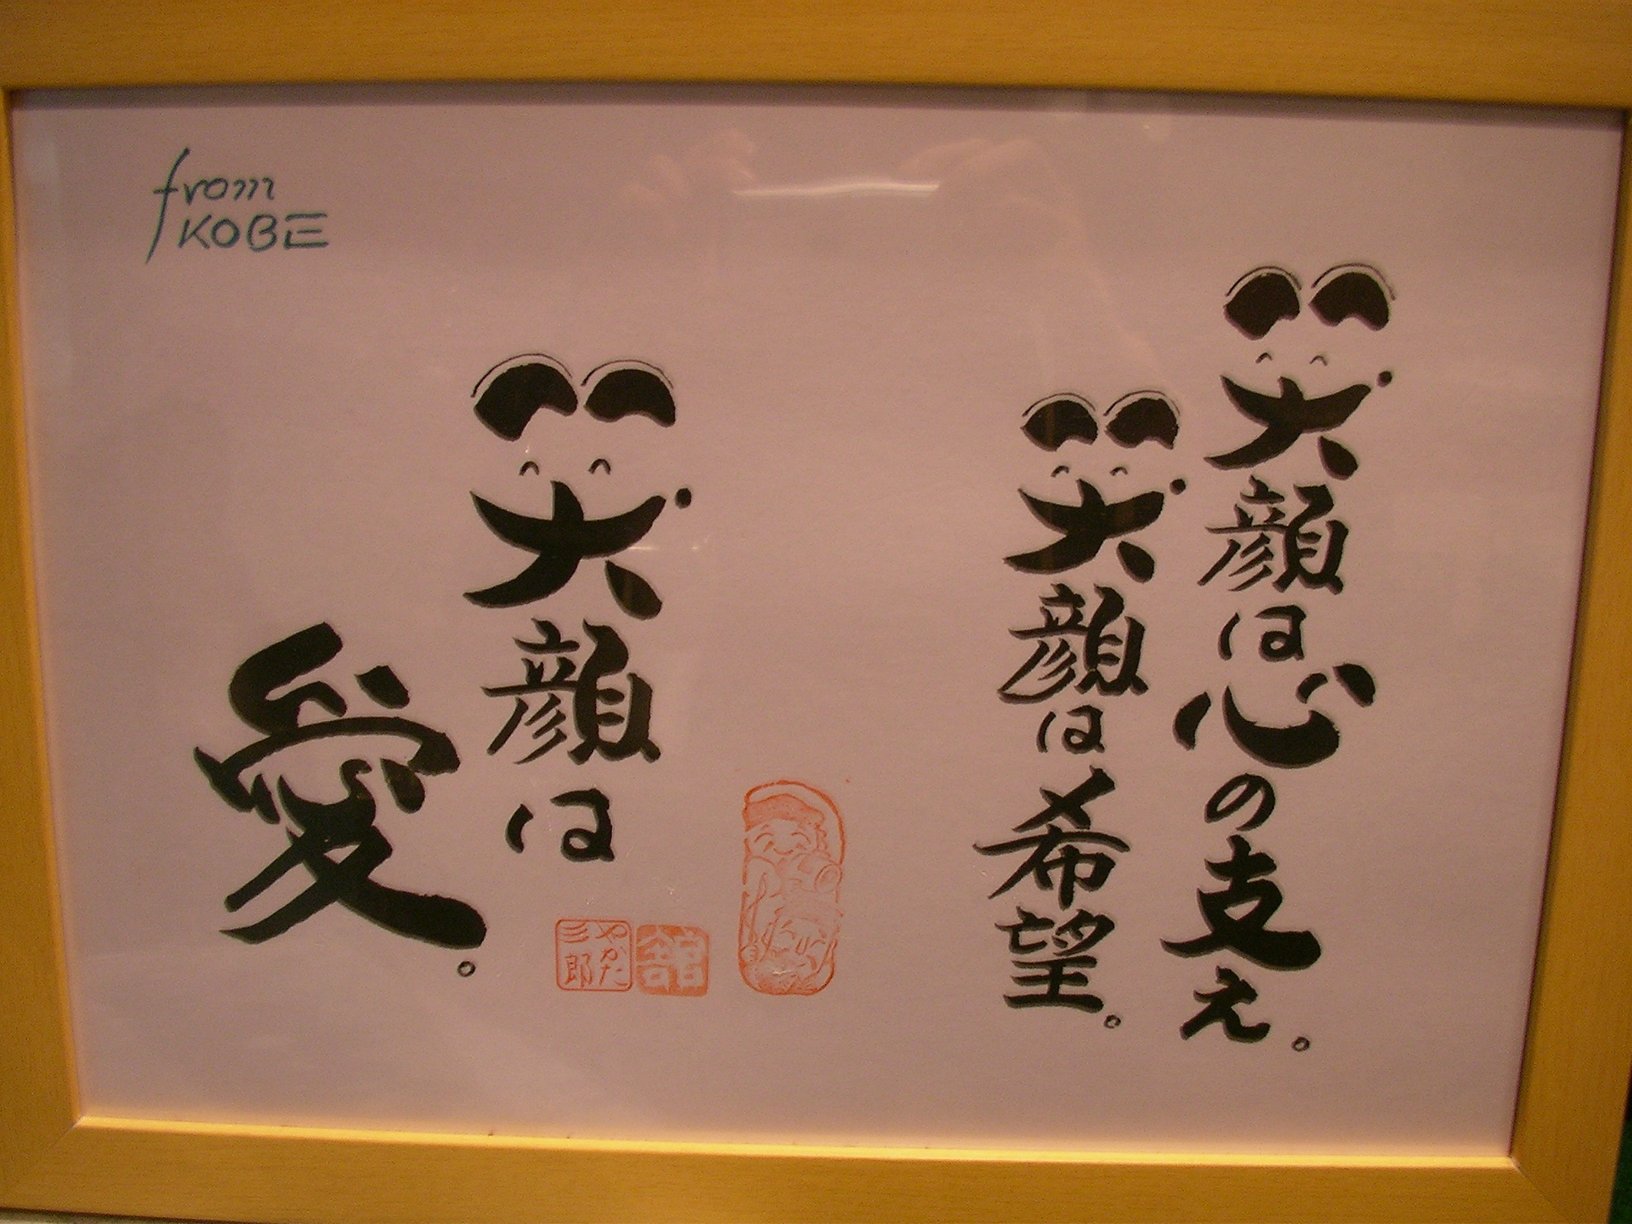 from
KOBE
笑顔は心の支え。
笑顔は希望。
笑顔は
愛。
舘
やかた
三郎